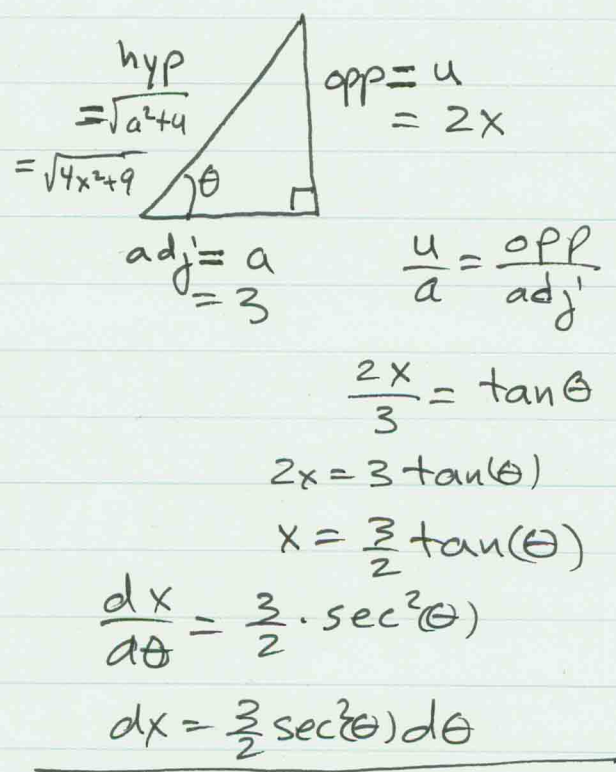 hyp
=√a²+u
=√4x²+9
opp = u
= 2x
θ
adj = a
= 3
u/a = opp/adj
2x/3 = tanθ
2x = 3 tan(θ)
x = 3/2 tan(θ)
dx/dθ = 3/2 · sec²(θ)
dx = 3/2 sec²(θ) dθ